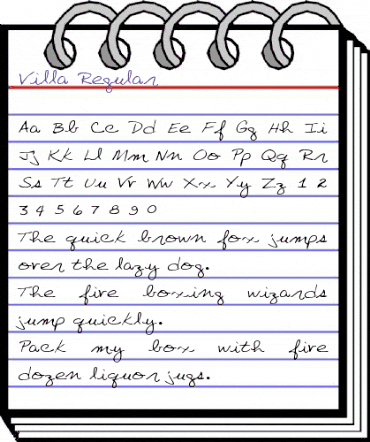 Villa Regular
Aa Bb Cc Dd Ee Ff Gg Hh Ii
Jj Kk Ll Mm Nn Oo Pp Qq Rr
Ss Tt Uu Vv Ww Xx Yy Zz 1 2
3 4 5 6 7 8 9 0
The quick brown fox jumps
over the lazy dog.
The five boxing wizards
jump quickly.
Pack my box with five
dozen liquor jugs.